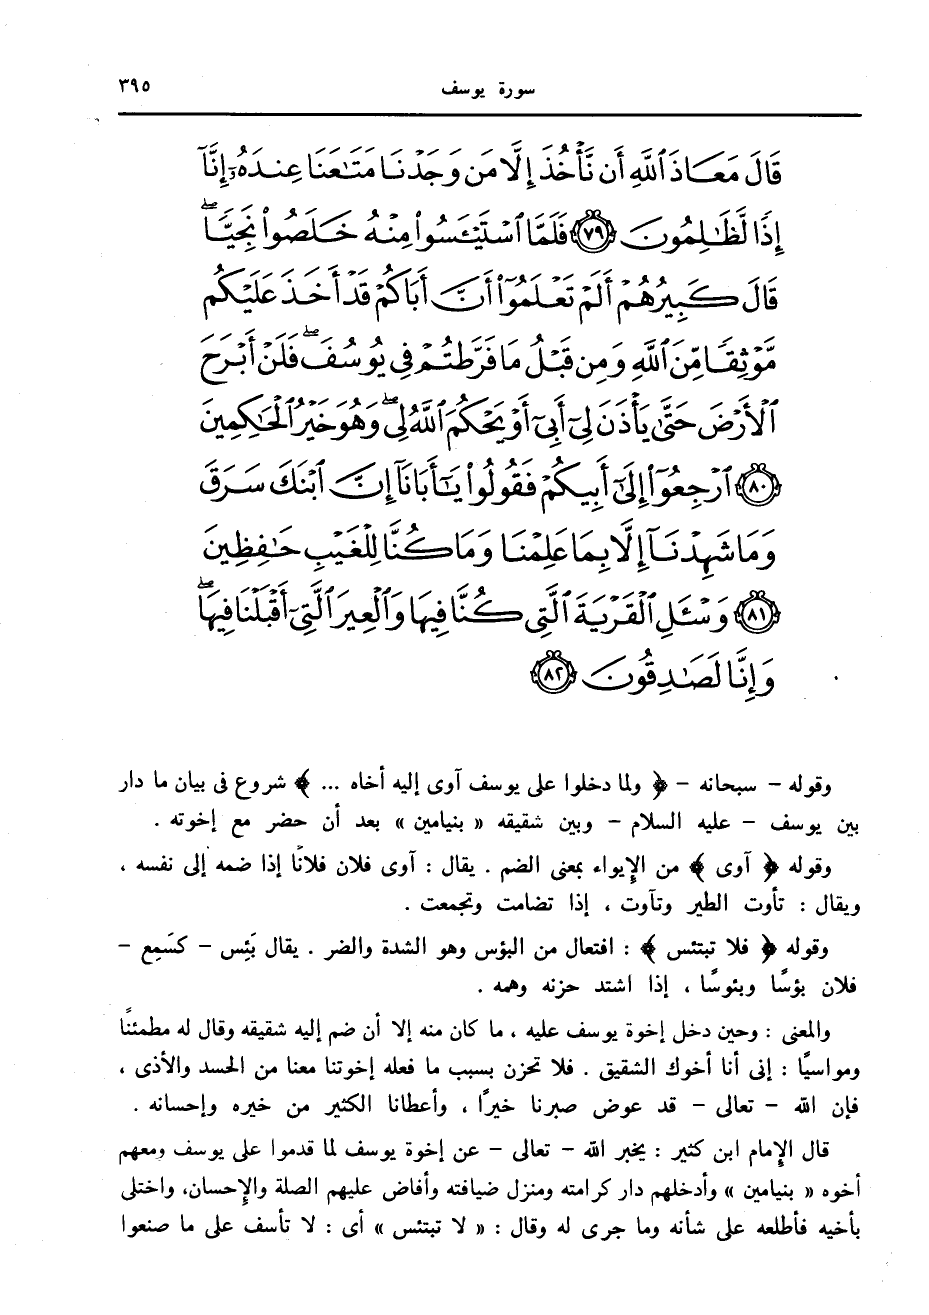 سورة يوسف ٣٩٥
قَالَ مَعَاذَ ٱللَّهِ أَن نَّأْخُذَ إِلَّا مَن وَجَدْنَا مَتَٰعَنَا عِندَهُۥٓ إِنَّآ
إِذًا لَّظَٰلِمُونَ ﴿٧٩﴾ فَلَمَّا ٱسْتَيْـَٔسُوا۟ مِنْهُ خَلَصُوا۟ نَجِيًّا ۖ
قَالَ كَبِيرُهُمْ أَلَمْ تَعْلَمُوٓا۟ أَنَّ أَبَاكُمْ قَدْ أَخَذَ عَلَيْكُم
مَّوْثِقًا مِّنَ ٱللَّهِ وَمِن قَبْلُ مَا فَرَّطتُمْ فِى يُوسُفَ ۖ فَلَنْ أَبْرَحَ
ٱلْأَرْضَ حَتَّىٰ يَأْذَنَ لِىٓ أَبِىٓ أَوْ يَحْكُمَ ٱللَّهُ لِى ۖ وَهُوَ خَيْرُ ٱلْحَٰكِمِينَ
﴿٨٠﴾ ٱرْجِعُوٓا۟ إِلَىٰٓ أَبِيكُمْ فَقُولُوا۟ يَٰٓأَبَانَآ إِنَّ ٱبْنَكَ سَرَقَ
وَمَا شَهِدْنَآ إِلَّا بِمَا عَلِمْنَا وَمَا كُنَّا لِلْغَيْبِ حَٰفِظِينَ
﴿٨١﴾ وَسْـَٔلِ ٱلْقَرْيَةَ ٱلَّتِى كُنَّا فِيهَا وَٱلْعِيرَ ٱلَّتِىٓ أَقْبَلْنَا فِيهَا ۖ
وَإِنَّا لَصَٰدِقُونَ ﴿٨٢﴾
وقوله - سبحانه - ﴿ ولما دخلوا على يوسف آوى إليه أخاه ... ﴾ شروع فى بيان ما دار
بين يوسف - عليه السلام - وبين شقيقه « بنيامين » بعد أن حضر مع إخوته .
وقوله ﴿ آوى ﴾ من الإيواء بمعنى الضم . يقال : آوى فلان فلانًا إذا ضمه إلى نفسه ،
ويقال : تأوت الطير وتآوت ، إذا تضامت وتجمعت .
وقوله ﴿ فلا تبتئس ﴾ : افتعال من البؤس وهو الشدة والضر . يقال بَئِس - كسَمِع -
فلان بؤسًا وبئوسًا ، إذا اشتد حزنه وهمه .
والمعنى : وحين دخل إخوة يوسف عليه ، ما كان منه إلا أن ضم إليه شقيقه وقال له مطمئنًا
ومواسيًا : إنى أنا أخوك الشقيق . فلا تحزن بسبب ما فعله إخوتنا معنا من الحسد والأذى ،
فإن الله - تعالى - قد عوض صبرنا خيرًا ، وأعطانا الكثير من خيره وإحسانه .
قال الإمام ابن كثير : يخبر الله - تعالى - عن إخوة يوسف لما قدموا على يوسف ومعهم
أخوه « بنيامين » وأدخلهم دار كرامته ومنزل ضيافته وأفاض عليهم الصلة والإحسان، واختلى
بأخيه فأطلعه على شأنه وما جرى له وقال : « لا تبتئس » أى : لا تأسف على ما صنعوا